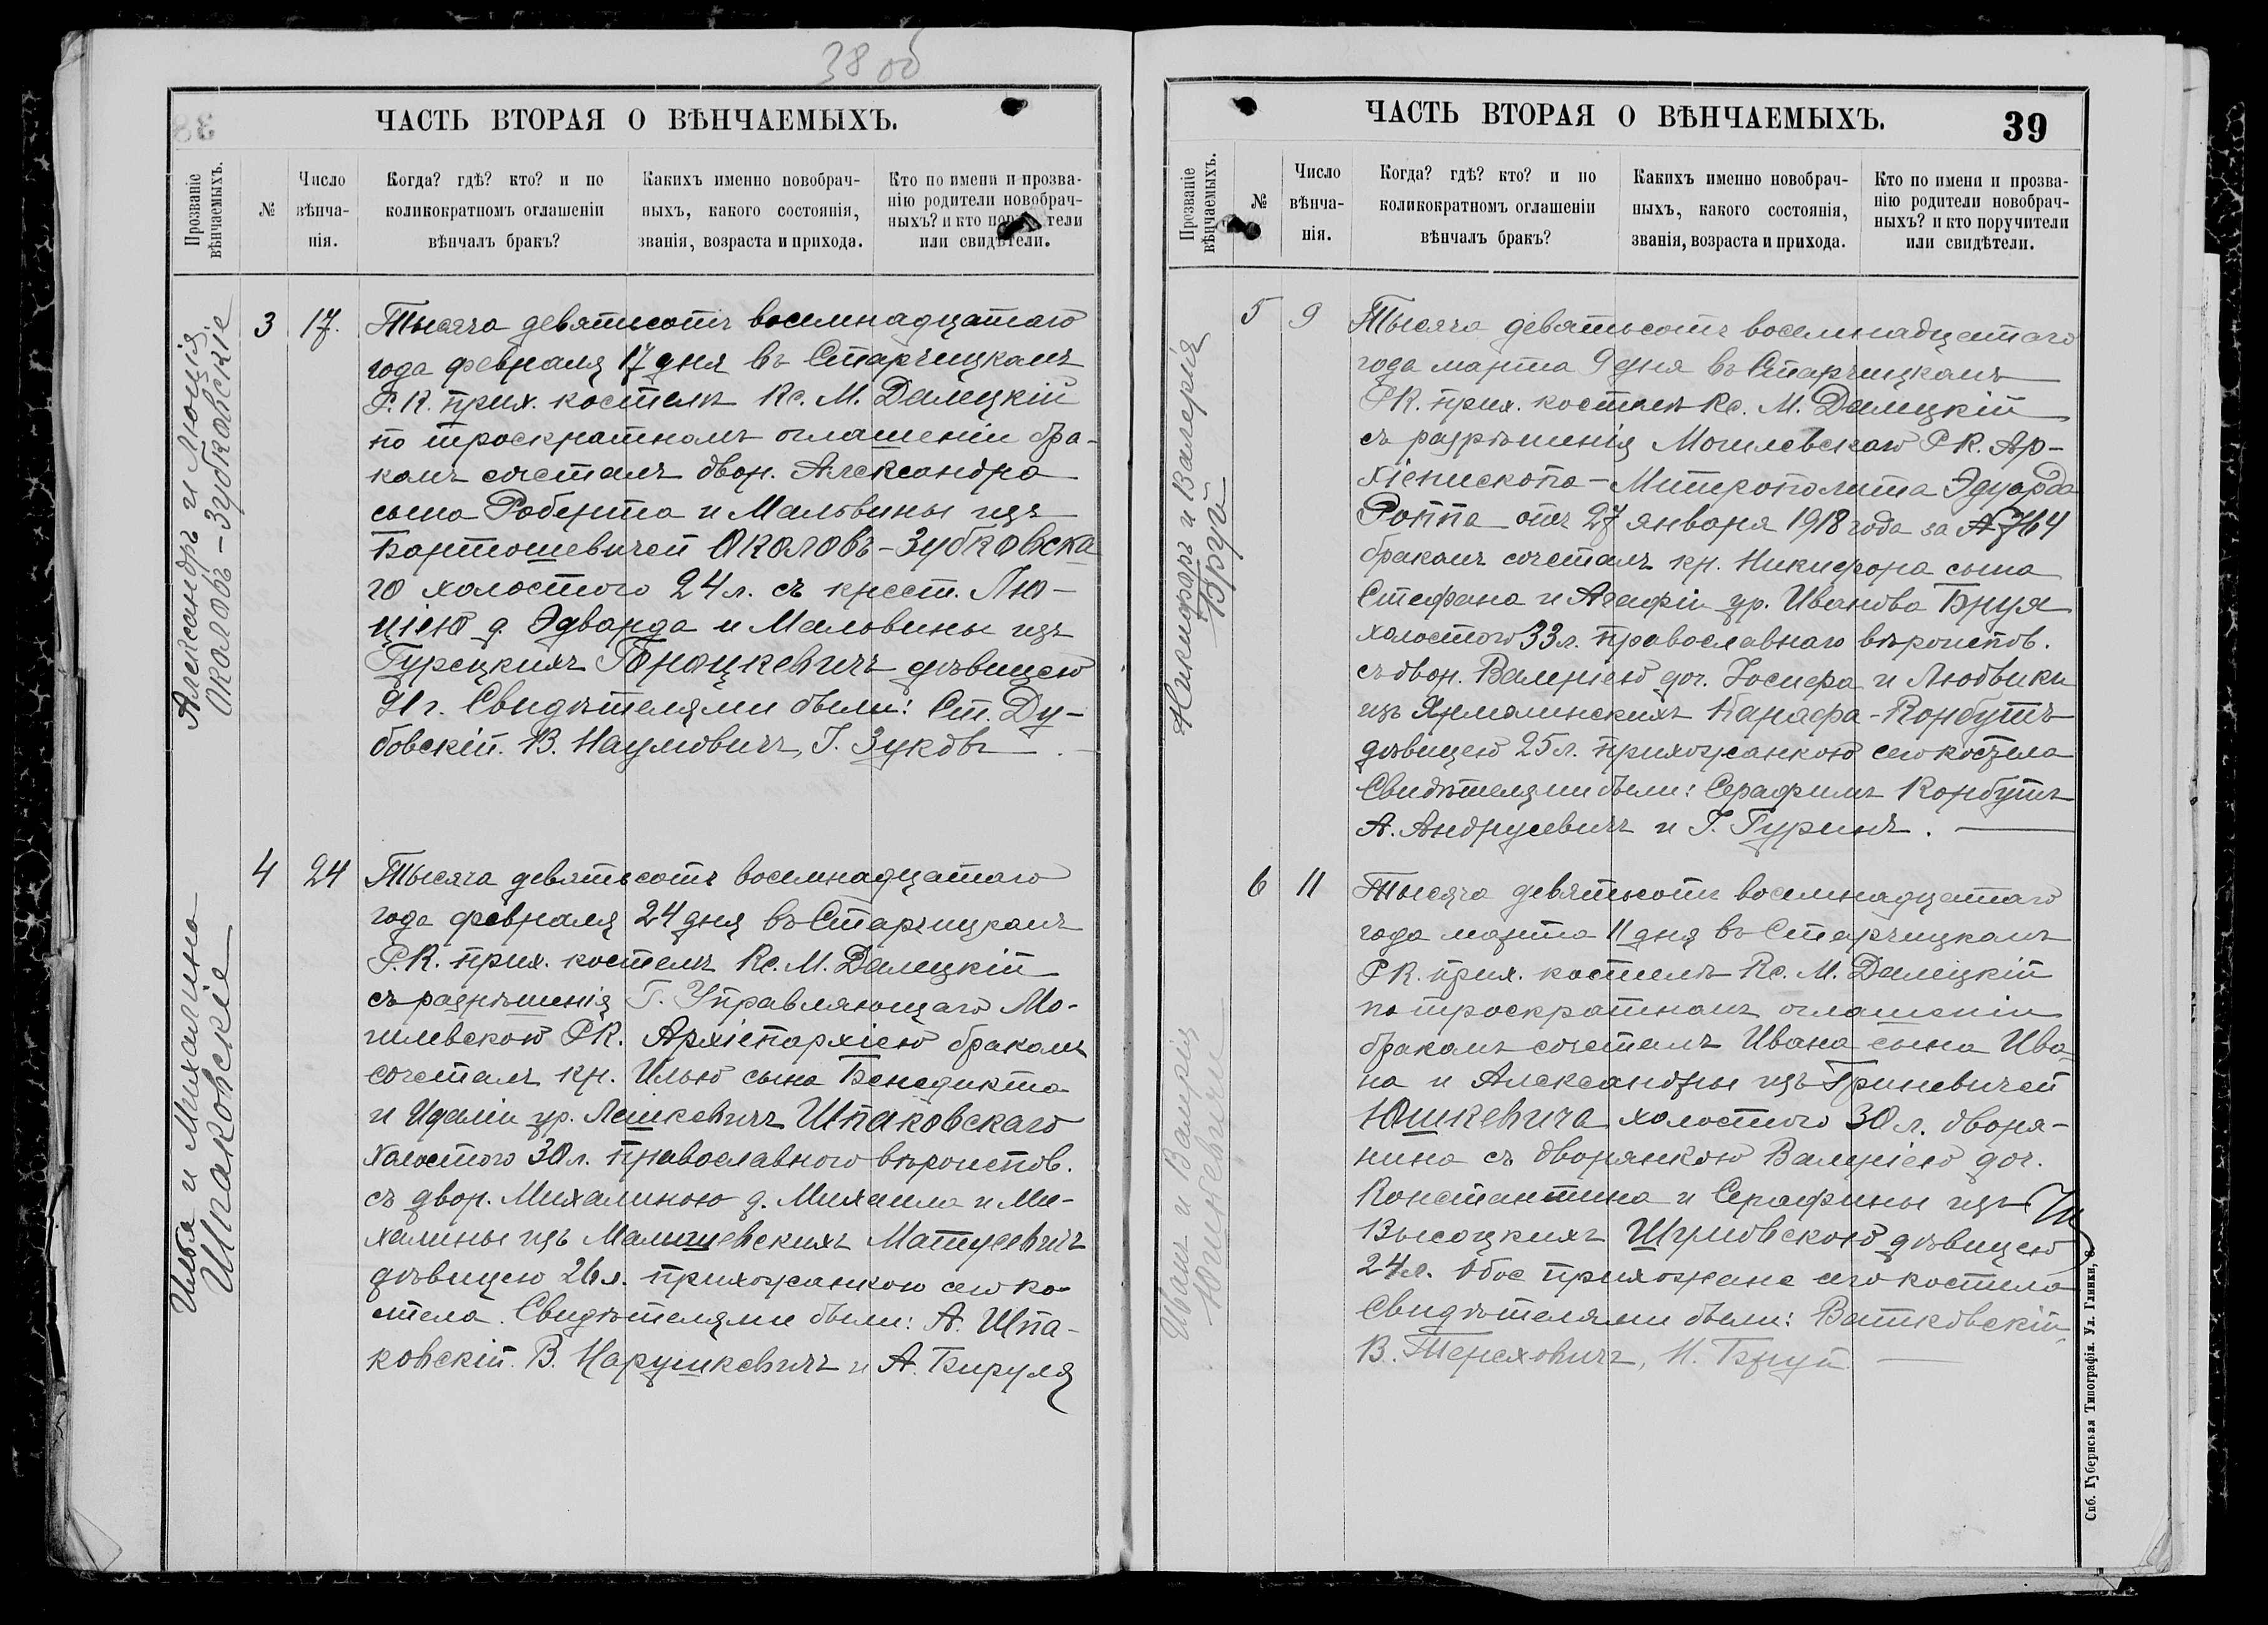 38 об
ЧАСТЬ ВТОРАЯ О ВѢНЧАЕМЫХЪ.
Прозваніе вѣнчаемыхъ.
№
Число вѣнча-нія.
Когда? гдѣ? кто? и по
коликократномъ оглашеніи
вѣнчалъ бракъ?
Какихъ именно новобрач-
ныхъ, какого состоянія,
званія, возраста и прихода.
Кто по имени и прозва-
нію родители новобрач-
ныхъ? и кто поручители
или свидѣтели.
Александръ и Люція
Околовъ-Зубковскіе
3 17. Тысяча девятьсотъ восемнадцатаго
года февраля 17 дня въ Старчицкомъ
Р. К. прих. костелѣ Кс. М. Далецкій
по троекратномъ оглашеніи бра-
комъ сочеталъ двор. Александра
сына Роберта и Мальвины изъ
Бартошевичей Околовъ-Зубковска
го холостого 24 л. съ крест. Лю-
ціею д. Эдварда и Мальвины изъ
Турецкихъ Троцкевичъ дѣвицею
21 г. Свидѣтелями были: Ст. Ду-
бовскій. В. Наумовичъ, І. Зуковъ
Илья и Михалина
Шпаковскіе
4 24 Тысяча девятьсотъ восемнадцатаго
года февраля 24 дня въ Старчицкомъ
Р. К. прих. костелѣ Кс. М. Далецкій
съ разрѣшенія Г. Управляющаго Мо-
гилевскою РК. Архіепархіею бракомъ
сочеталъ кр. Илью сына Бенедикта
и Идаліи ур. Лешкевичъ Шпаковскаго
холостого 30 л. православного вѣроиспов.
съ двор. Михалиною д. Михаила и Ми-
халины изъ Малишевскихъ Матусевичъ
дѣвицею 26 л. прихожанкою сего ко-
стела. Свидѣтелями были: А. Шпа-
ковскій. В. Нарушкевичъ и А. Бируля
ЧАСТЬ ВТОРАЯ О ВѢНЧАЕМЫХЪ.
39
Прозваніе вѣнчаемыхъ.
№
Число вѣнча-нія.
Когда? гдѣ? кто? и по
коликократномъ оглашеніи
вѣнчалъ бракъ?
Какихъ именно новобрач-
ныхъ, какого состоянія,
званія, возраста и прихода.
Кто по имени и прозва-
нію родители новобрач-
ныхъ? и кто поручители
или свидѣтели.
Никифоръ и Валерія
Бруй
5 9 Тысяча девятьсотъ восемнадцатаго
года марта 9 дня въ Старчицкомъ
РК. прих. костелѣ Кс. М. Далецкій
съ разрѣшенія Могилевскаго РК. Ар-
хіепископа-Митрополита Эдуарда
Роппа отъ 27 января 1918 года за № 764
бракомъ сочеталъ кр. Никифора сына
Стефана и Агафіи ур. Иванова Бруя
холостого 33 л. православнаго вѣроиспов.
съ двор. Валеріею доч. Іосифа и Людвики
изъ Ярмолинскихъ Карафа-Корбутъ
дѣвицею 25 л. прихожанкою сего костела
Свидѣтелями были: Серафимъ Корбутъ
А. Андрусевичъ и І. Гуринъ.
Иванъ и Валерія
Юшкевичи
6 11 Тысяча девятьсотъ восемнадцатаго
года марта 11 дня въ Старчицкомъ
РК. прих. костелѣ Кс. М. Далецкій
по троекратномъ оглашеніи
бракомъ сочеталъ Ивана сына Ива-
на и Александры изъ Гриневичей
Юшкевича холостого 30 л. дворя-
нина съ дворянкою Валеріею доч.
Константина и Серафины изъ
Высоцкихъ дѣвицею
24 л. Обое прихожане сего костела
Свидѣтелями были: Ватковскій
В. Тереховичъ, И. Бруй
Спб. Губернская Типографія. Ул. Глинки, 8.